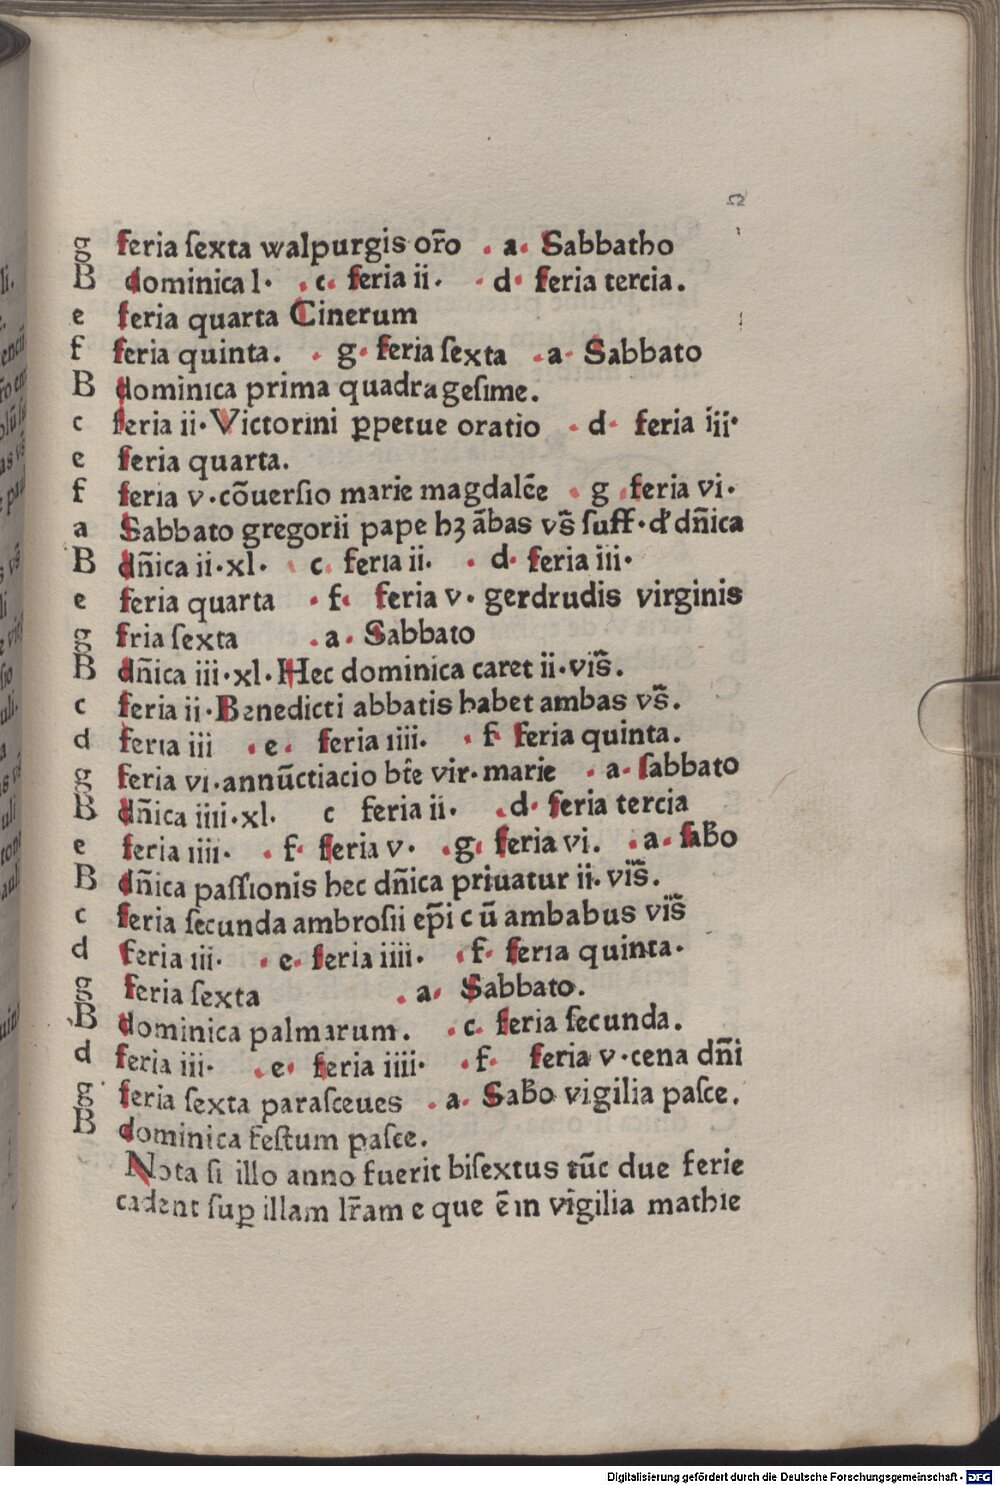 52
g feria ſexta walpurgis or̄o . a. Sabbatho
B dominica l. . c. feria ii. . d. feria tercia.
e feria quarta Cinerum
f feria quinta. . g. feria ſexta . a. Sabbato
B dominica prima quadrageſime.
c feria ii. Victorini ꝑpetue oratio . d. feria iii.
e feria quarta.
f feria v. cōuerſio marie magdalēe . g .feria vi.
a Sabbato gregorii pape hꝫ ābas vs̄ ſuff. d' dn̄ica
B dn̄ica ii.xl. . c. feria ii. . d. feria iii.
e feria quarta . f. feria v. gerdrudis virginis
g fria ſexta . a. Sabbato
B dn̄ica iii.xl. Hec dominica caret ii. vis̄.
c feria ii. Benedicti abbatis habet ambas vs̄.
d feria iii . e. feria iiii. . f. feria quinta.
g feria vi. annūctiacio bt̄e vir. marie . a. ſabbato
B dn̄ica iiii.xl. c feria ii. . d. feria tercia
e feria iiii. . f. feria v. . g. feria vi. . a. ſab̄o
B dn̄ica paſſionis hec dn̄ica priuatur ii. vis̄.
c feria ſecunda ambroſii ep̄i cū ambabus vis̄
d feria iii. . e. feria iiii. . f. feria quinta.
g feria ſexta . a. Sabbato.
B dominica palmarum. . c. feria ſecunda.
d feria iii. . e. feria iiii. . f. feria v. cena dn̄i
g feria ſexta paraſceues . a. Sab̄o vigilia paſce.
B dominica feſtum paſce.
Nota ſi illo anno fuerit biſextus tūc due ferie
cadent ſuꝑ illam lr̄am e que ē in vigilia mathie
Digitalisierung gefördert durch die Deutsche Forschungsgemeinschaft - DFG